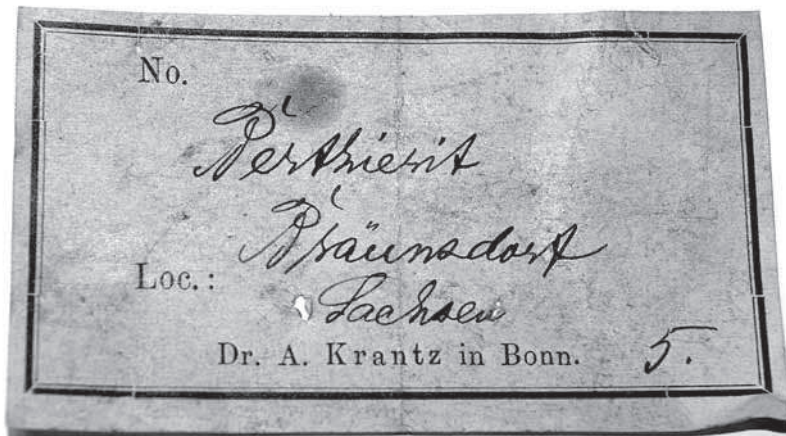 No.
Berthierit
Bräunsdorf
Loc.:
Sachsen
Dr. A. Krantz in Bonn. 5.